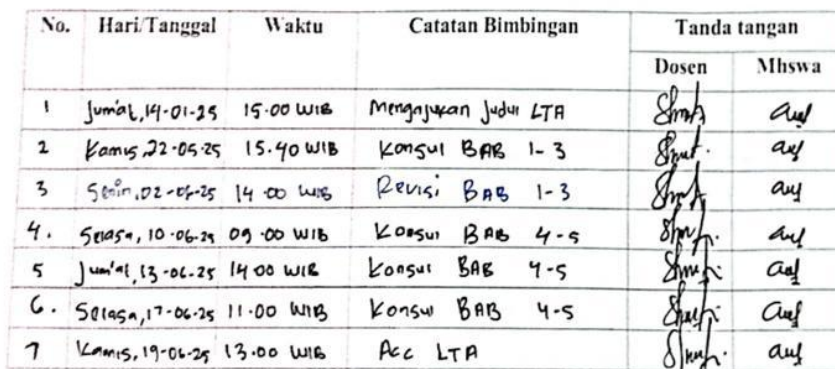 No. Hari/Tanggal Waktu Catatan Bimbingan Tanda tangan
Dosen Mhswa
1 Jum'at, 14-01-25 15.00 WIB Mengajukan Judul LTA
2 Kamis, 22-05-25 15.40 WIB Konsul BAB 1-3
3 Senin, 02-06-25 14.00 WIB Revisi BAB 1-3
4. Selasa, 10-06-25 09.00 WIB Konsul BAB 4-5
5 Jum'at, 13-06-25 14.00 WIB Konsul BAB 4-5
6. Selasa, 17-06-25 11.00 WIB Konsul BAB 4-5
7 Kamis, 19-06-25 13.00 WIB Acc LTA